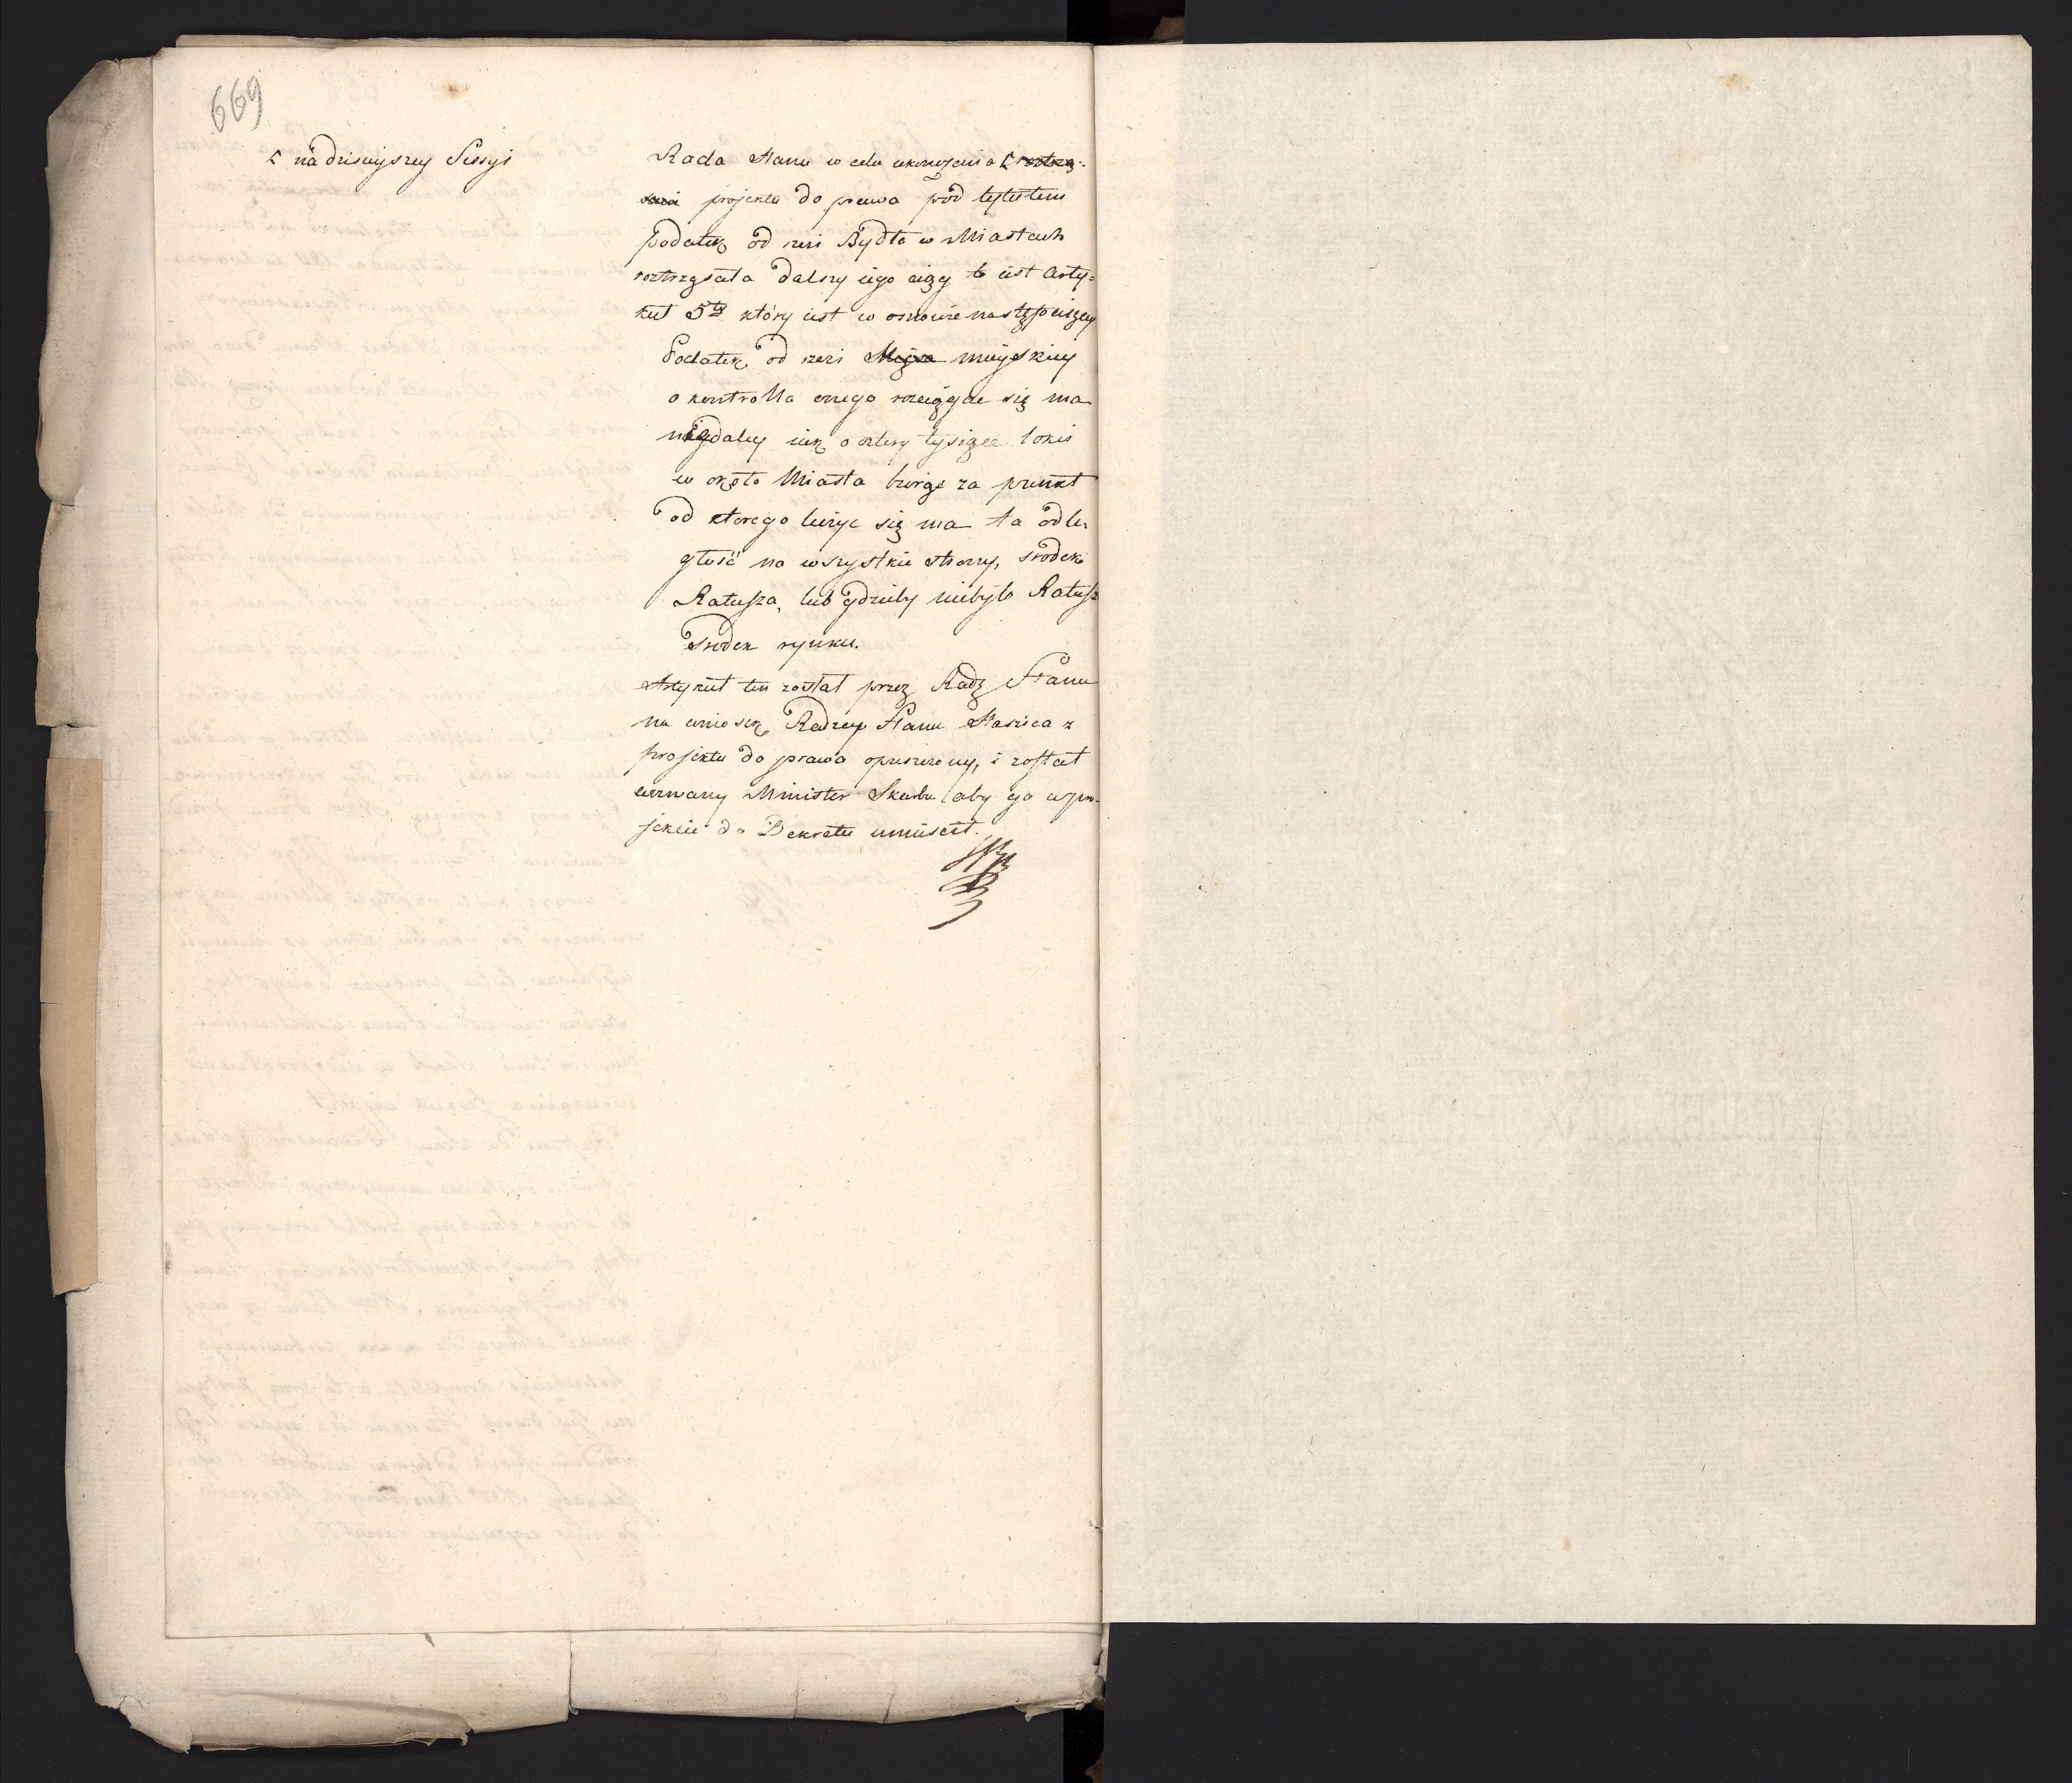 669
ꞌ na dzisieyszey Sessyi
Rada Stanu w celu ukończenia roztrzą-
sania projektu do prawa pod tytułem
podatek od rzezi Bydła w Miastach
roztrząsała dalszy iego ciąg to iest Arty-
kuł 5ty który iest w osnowie następuiącey
Podatek od rzezi mieyskiey
a kontrolla onego rozciągać się ma
naydaley iak o cztery tysiące łokci
w około Miasta biorąc za punkt
od ktorego liczyc się ma ta odle-
głość na wszystkie strony, srodek
Ratusza, lub gdzieby niebyło Ratusza
srodek rynku.
Artykuł ten został przez Radę Stanu
na wniosek Radzcy Stanu Staszica z
projektu do prawa opuszczony, i został
wezwany Minister Skarbu aby go w pro-
jekcie do Dekretu umieścił.